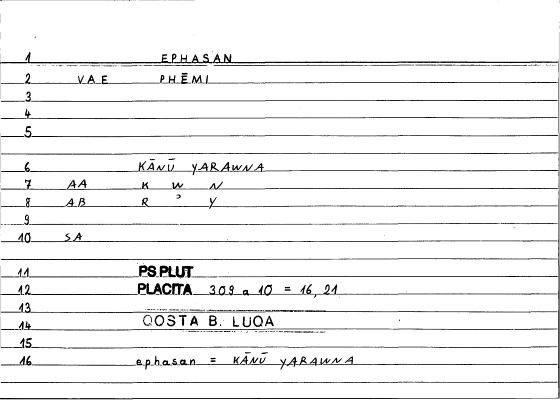 1 EPHASAN
2 VAE PHĒMI
3
4
5
6 KĀNŪ YARAWNA
7 AA K W N
8 AB R ʾ Y
9
10 SA
11 PS PLUT
12 PLACITA 309 a 10 = 16, 21
13
14 QOSTA B. LUQA
15
16 ephasan = KĀNŪ YARAWNA